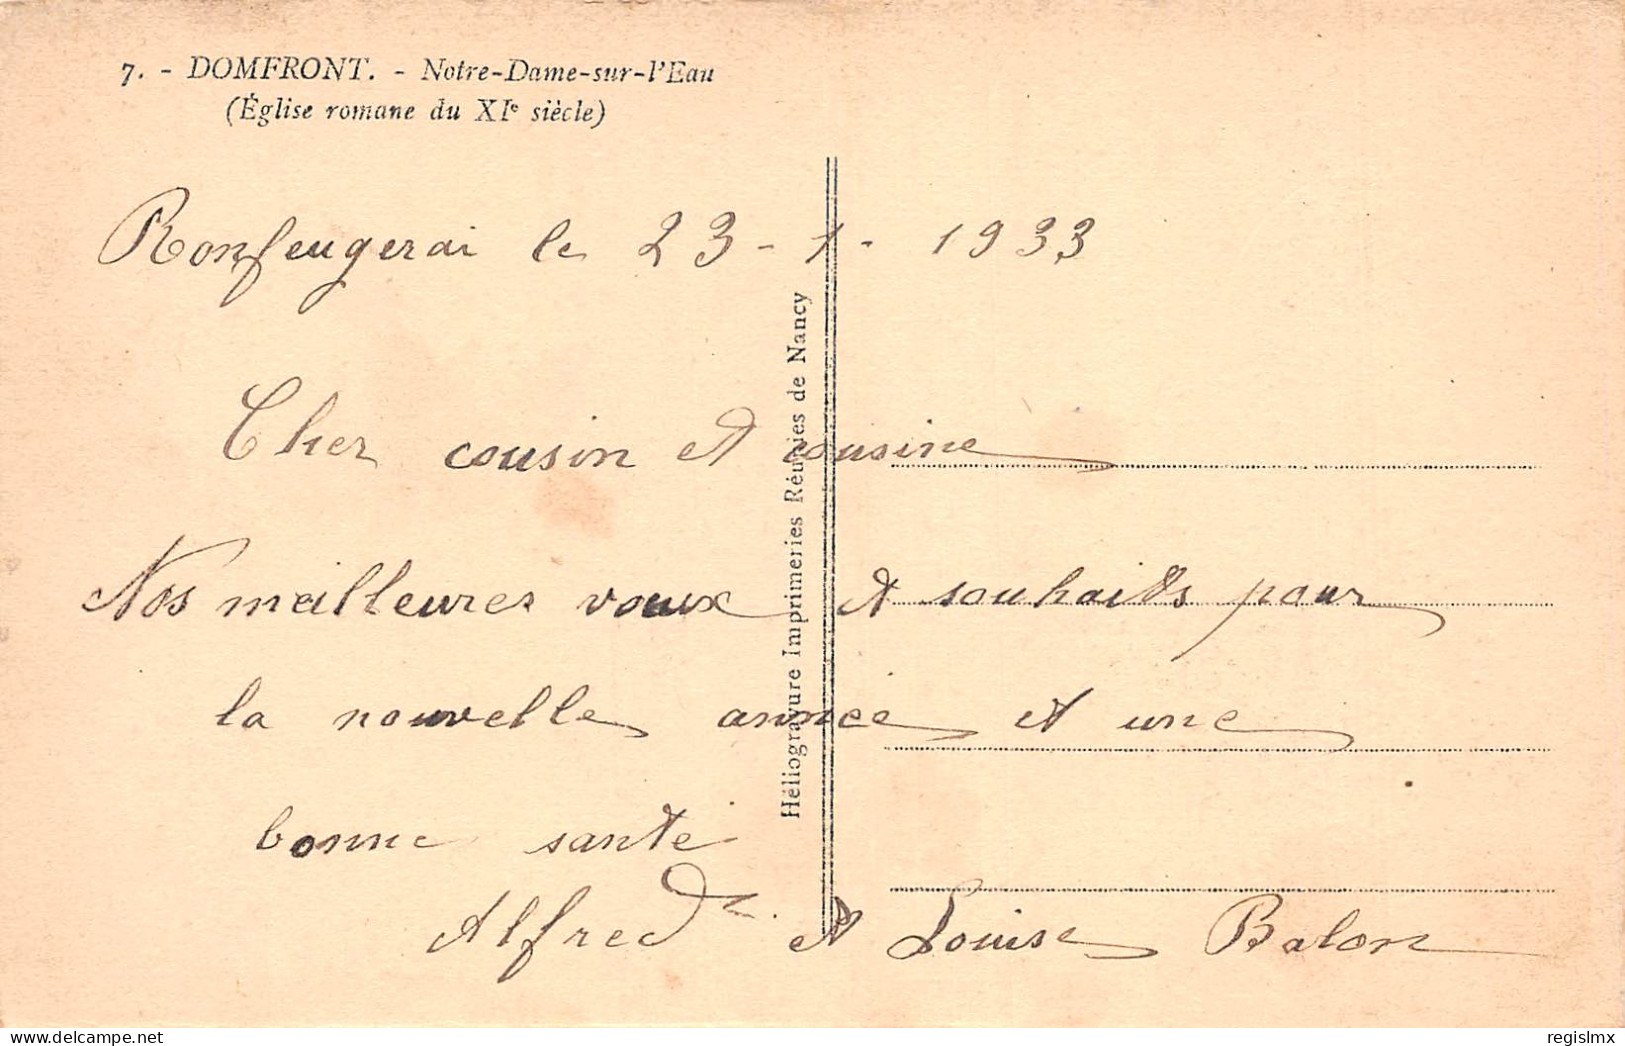 7. - DOMFRONT. - Notre-Dame-sur-l'Eau
(Église romane du XIe siècle)
Ronfeugerai le 23 - 1 - 1933
Cher cousin et cousine
Nos meilleures voeux et souhaits pour
la nouvelle année et une
bonne santé
Alfred et Louise Balon
Héliogravure Imprimeries Réunies de Nancy
delcampe.net
regislmx